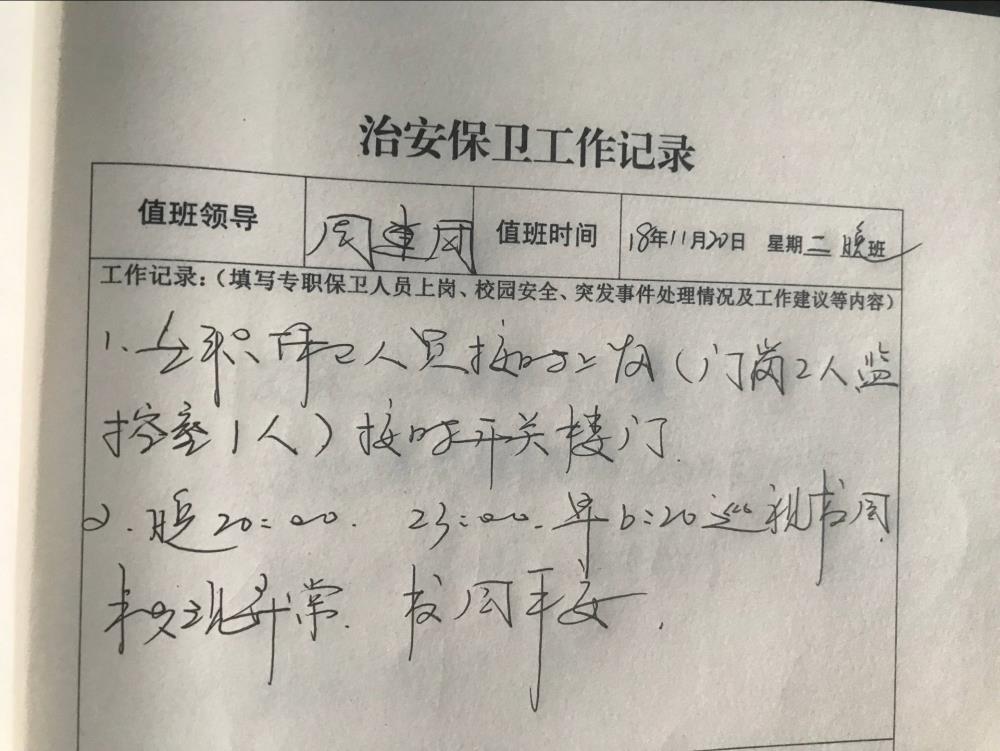 治安保卫工作记录
值班领导 周建国 值班时间 18年11月20日 星期二 晚班
工作记录:(填写专职保卫人员上岗、校园安全、突发事件处理情况及工作建议等内容)
1、专职保卫人员按时上岗(门岗2人监
控室1人)按时开关楼门.
2.晚20:00. 23:00.早6:20巡视校园.
未发现异常. 校园平安.